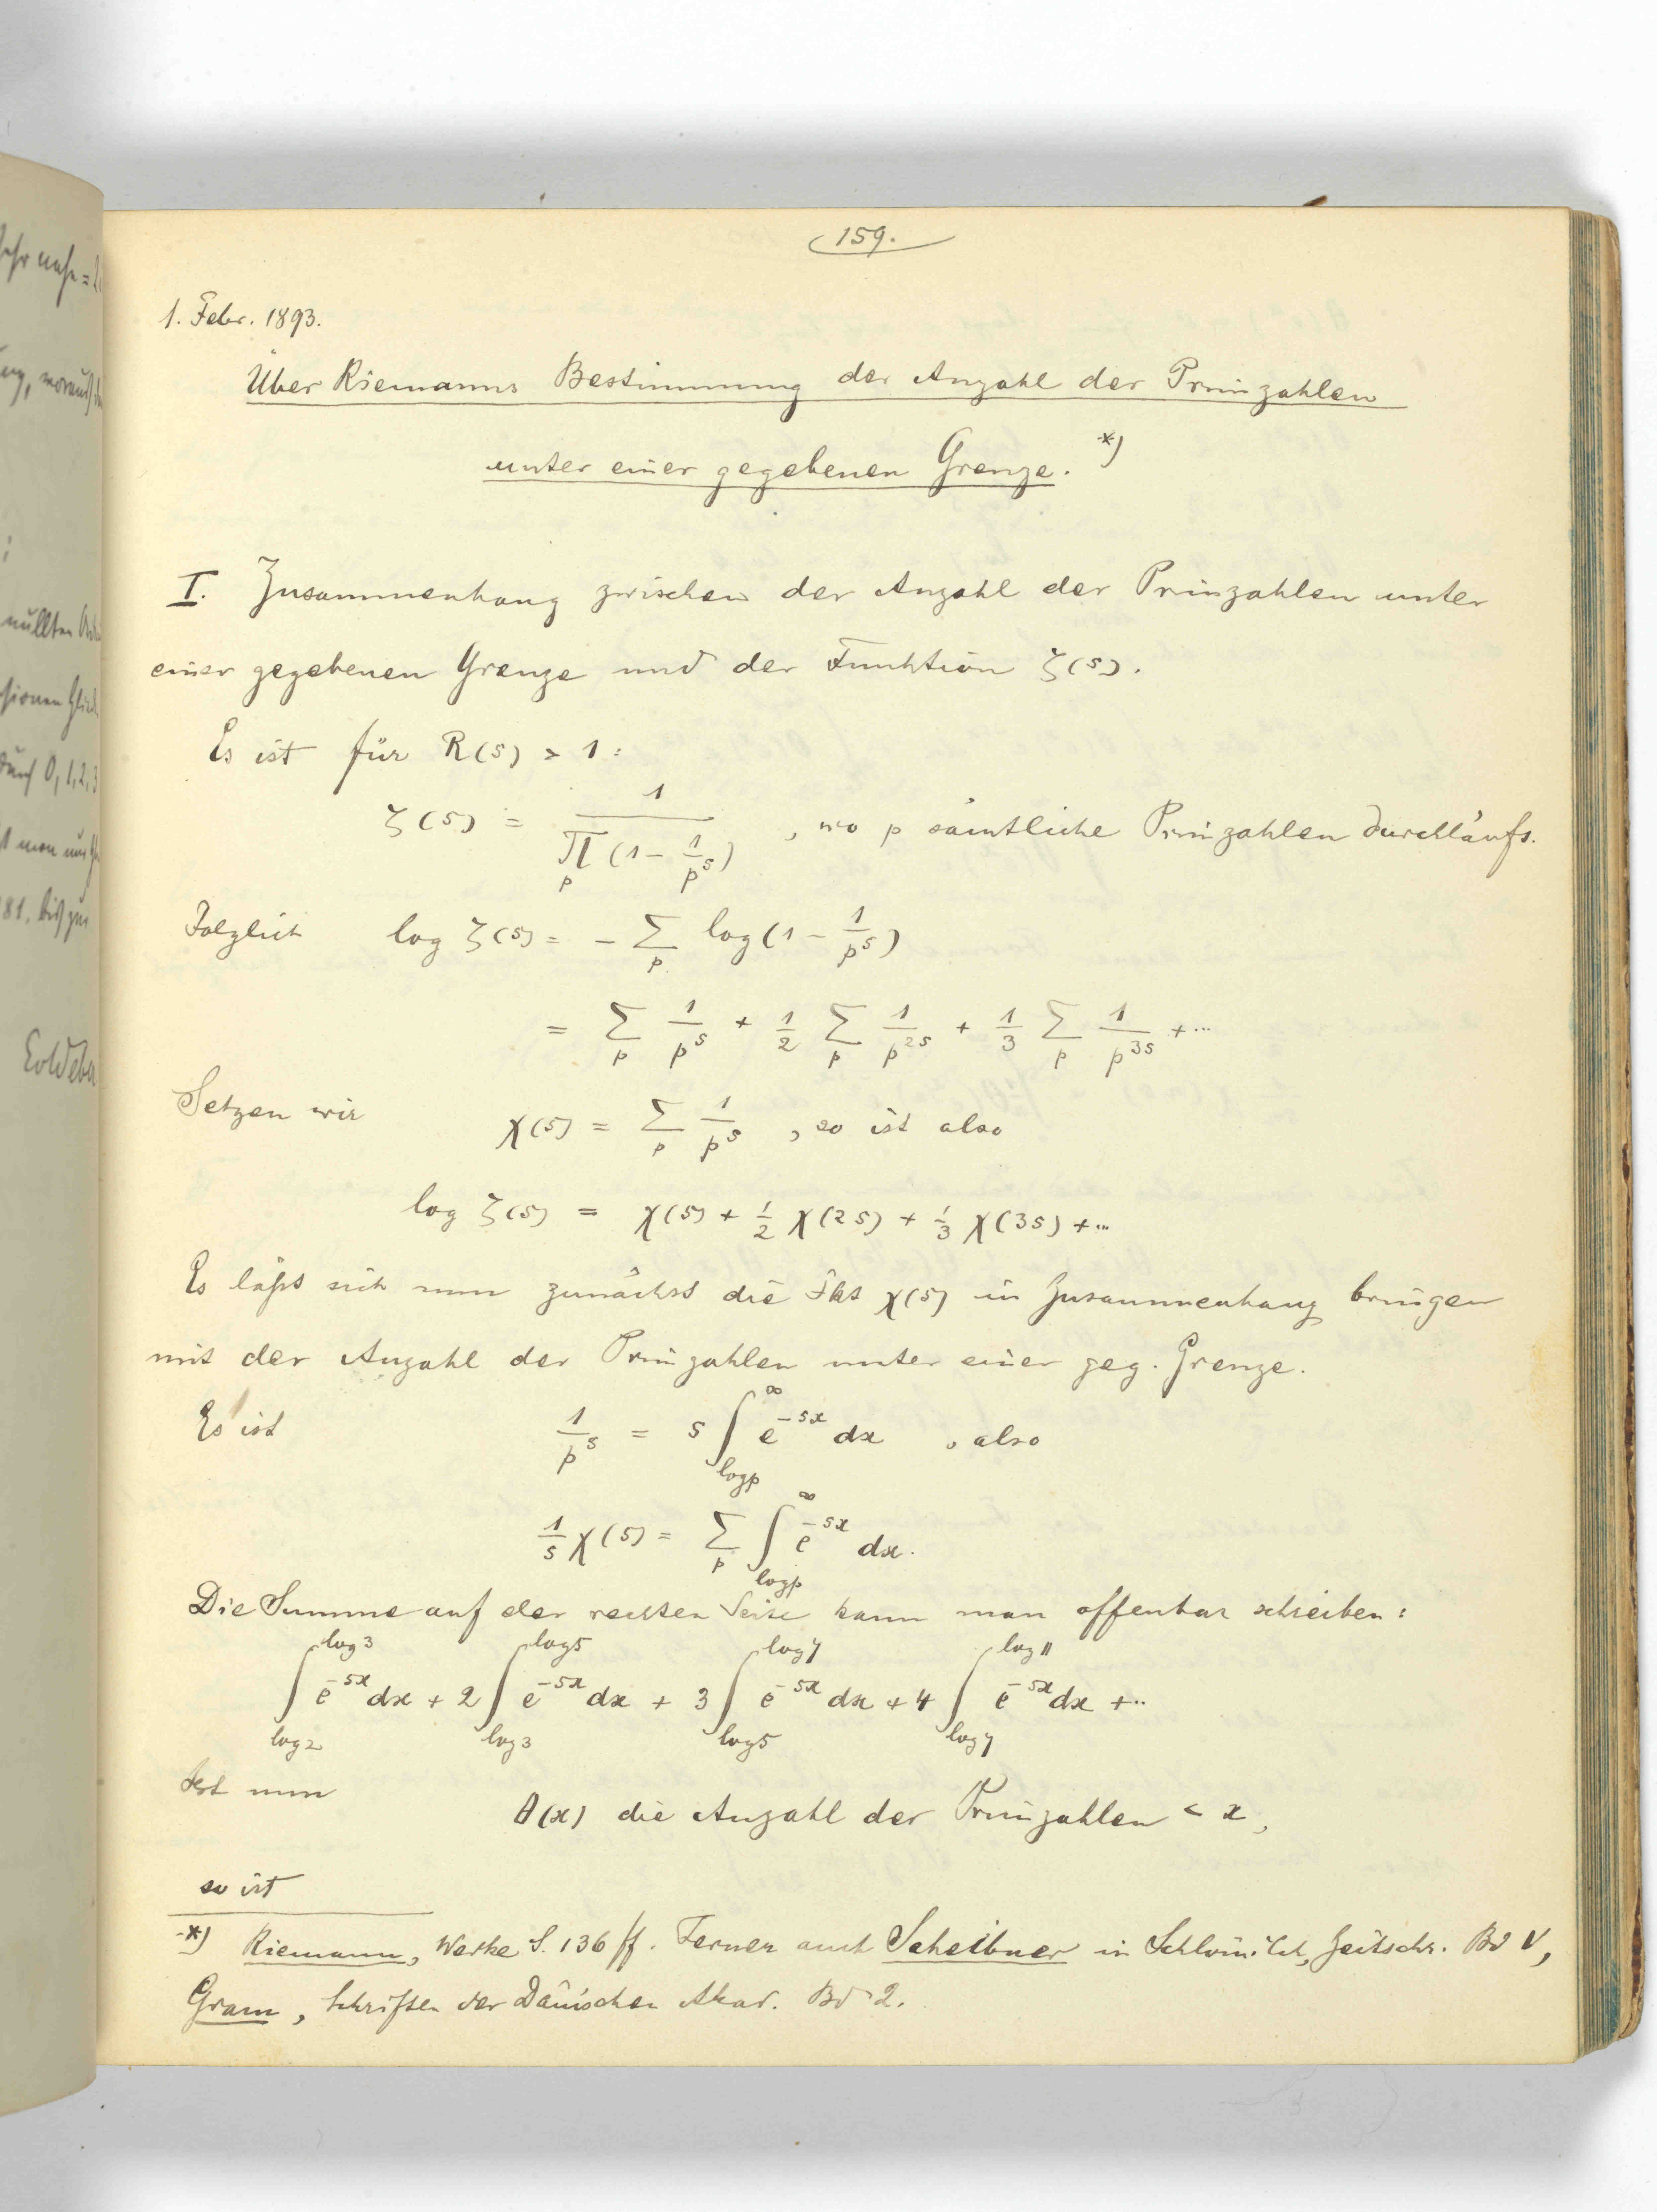 159.
1. Febr. 1893.
Über Riemanns Bestimmung der Anzahl der Primzahlen
unter einer gegebenen Grenze. *)
I. Zusammenhang zwischen der Anzahl der Primzahlen unter
einer gegebenen Grenze und der Funktion ζ(s).
Es ist für R(s) > 1:
ζ(s) = 1 / ∏_p (1 - 1/p^s) , wo p sämtliche Primzahlen durchläuft.
Folglich log ζ(s) = - ∑_p log(1 - 1/p^s)
= ∑_p 1/p^s + 1/2 ∑_p 1/p^{2s} + 1/3 ∑_p 1/p^{3s} + ...
Setzen wir χ(s) = ∑_p 1/p^s , so ist also
log ζ(s) = χ(s) + 1/2 χ(2s) + 1/3 χ(3s) + ...
Es läßt sich nun zunächst die Fkt χ(s) in Zusammenhang bringen
mit der Anzahl der Primzahlen unter einer geg. Grenze.
Es ist 1/p^s = s ∫_{log p}^∞ e^{-sx} dx , also
1/s χ(s) = ∑_p ∫_{log p}^∞ e^{-sx} dx.
Die Summe auf der rechten Seite kann man offenbar schreiben:
∫_{log 2}^{log 3} e^{-sx} dx + 2 ∫_{log 3}^{log 5} e^{-sx} dx + 3 ∫_{log 5}^{log 7} e^{-sx} dx + 4 ∫_{log 7}^{log 11} e^{-sx} dx + ..
Ist nun θ(x) die Anzahl der Primzahlen < x,
so ist
*) Riemann, Werke S. 136 ff. Ferner auch Scheibner in Schlömilch, Zeitschr. Bd V,
Gram, Schriften der Dänischen Akad. Bd 2.
sehr nahe =
nullten
durch 0, 1, 2, 3